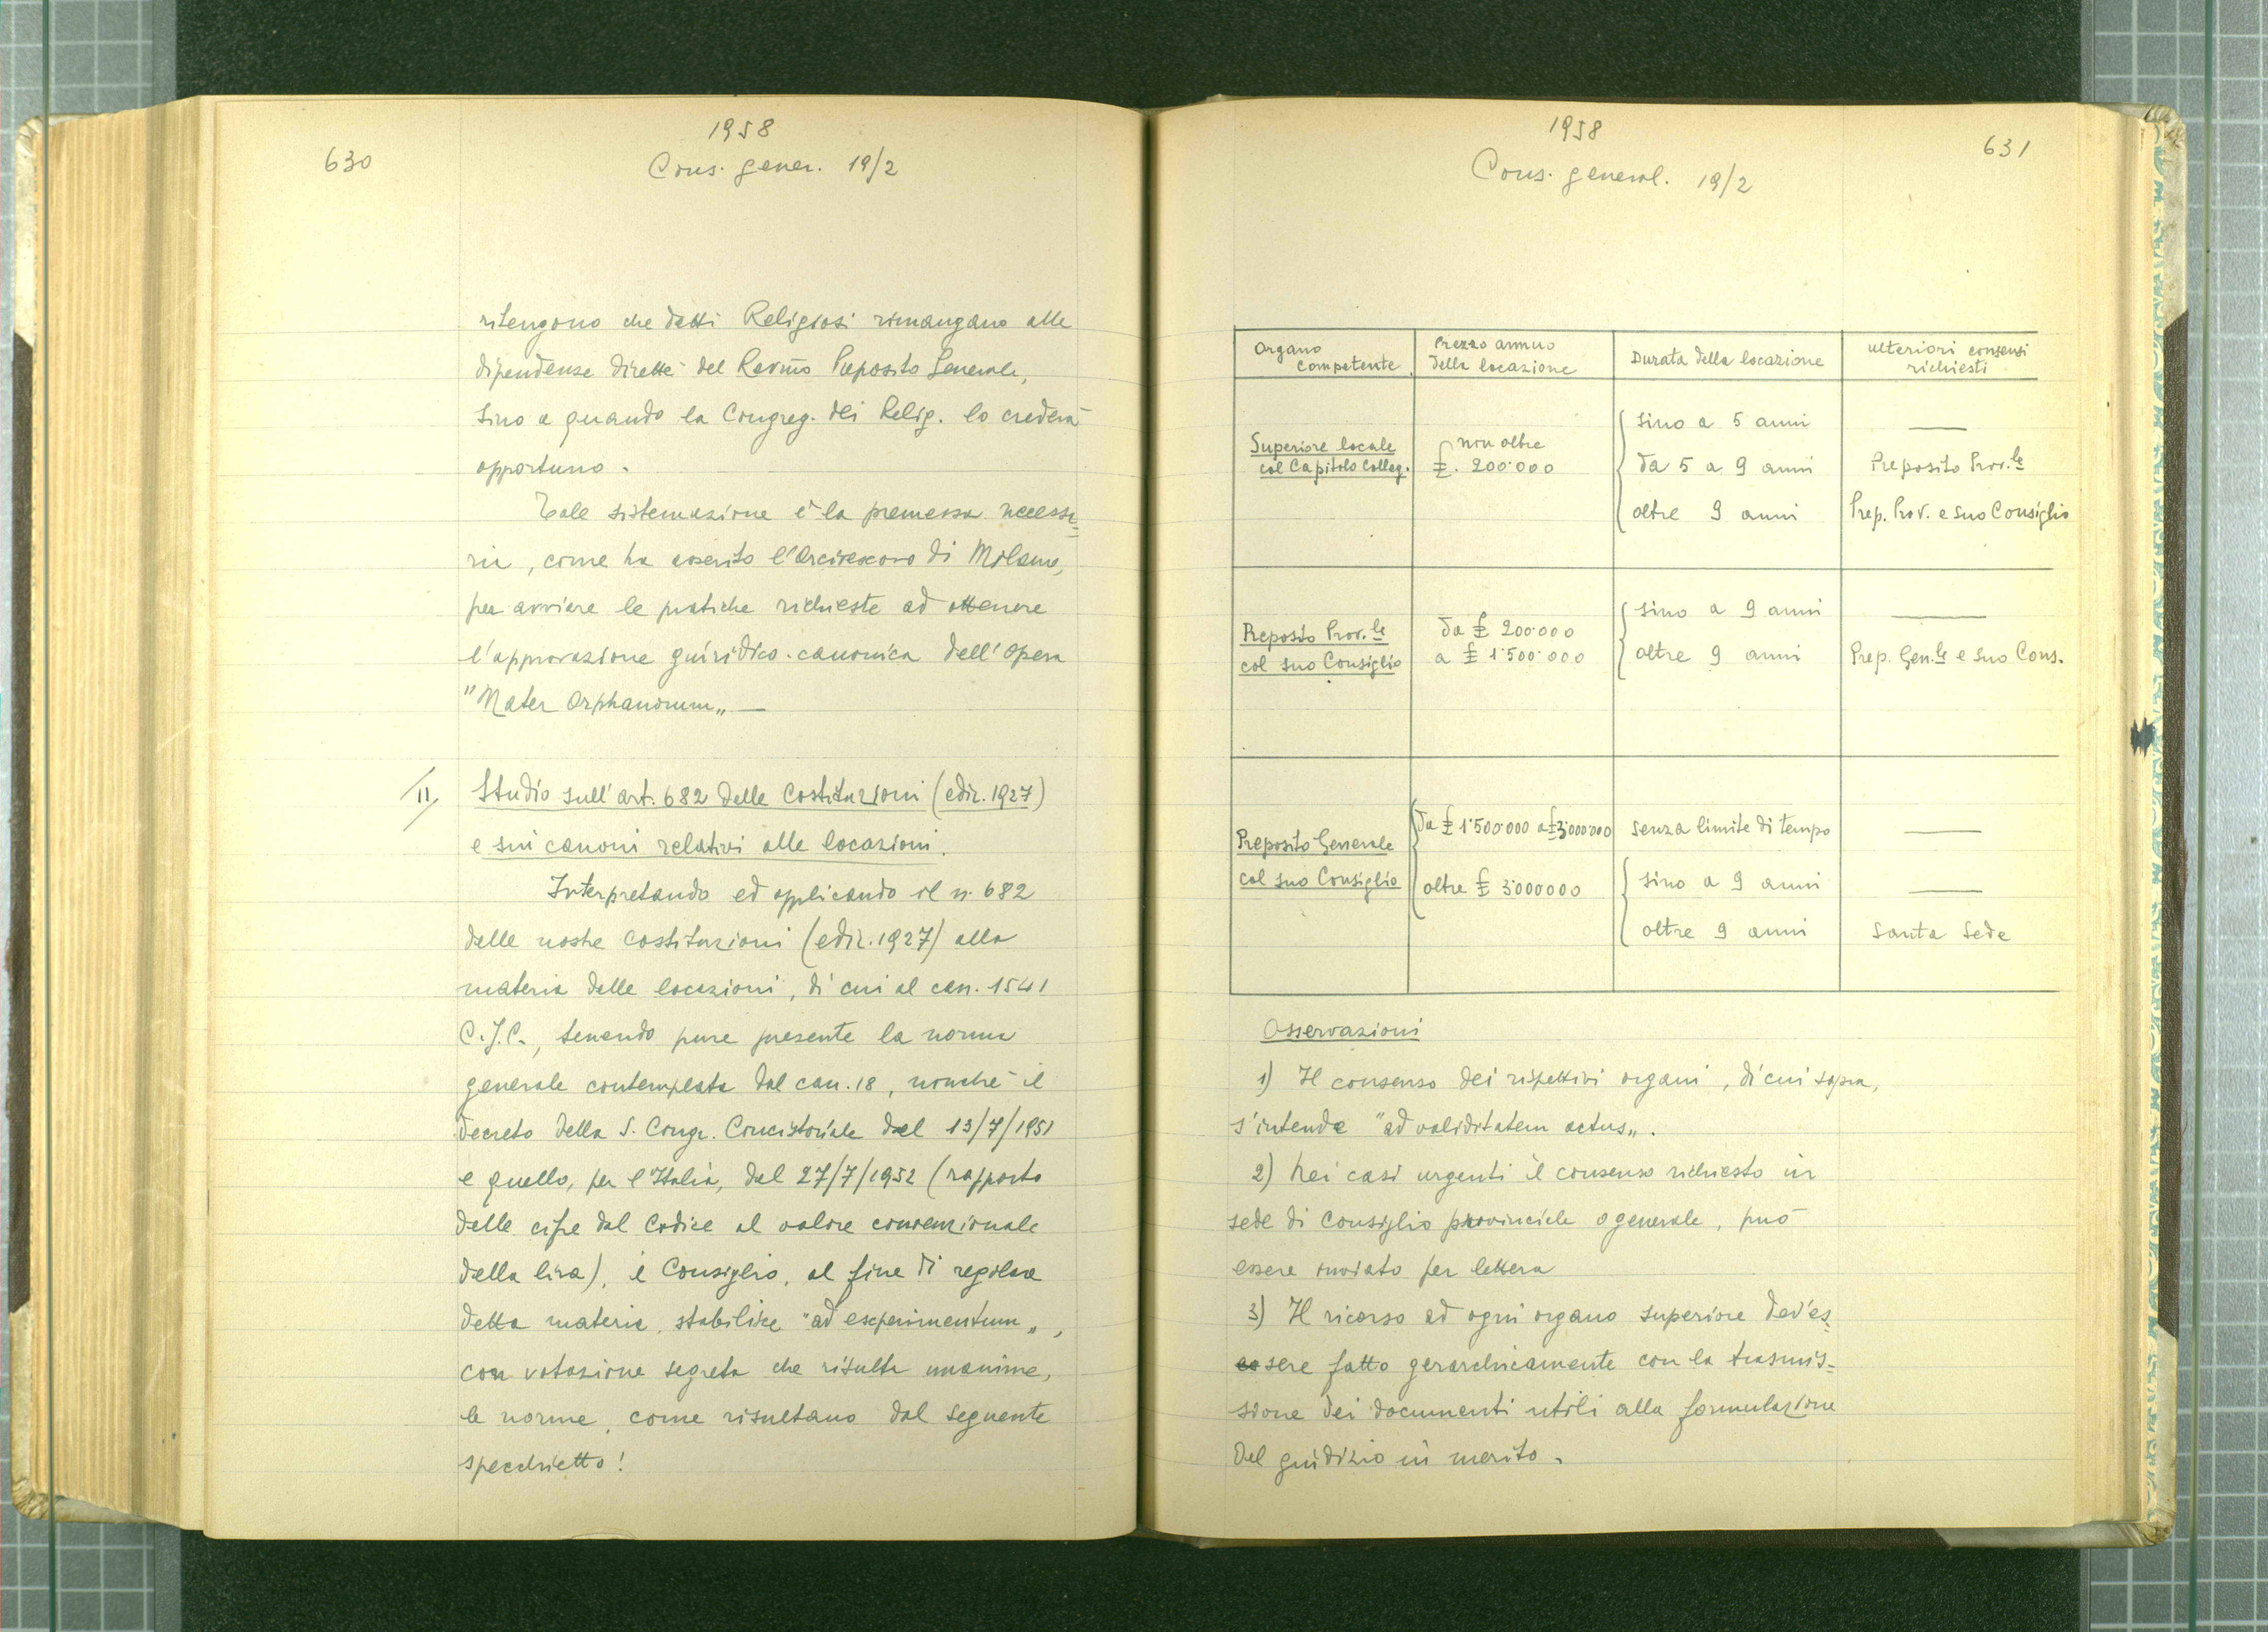 1958
630
Cons. gener. 19/2
ritengono che detti Religiosi rimangano alle
dipendenze dirette del Rev.mo Preposito Generale,
sino a quando la Congreg. dei Relig. lo crederà
opportuno.
Tale sistemazione è la premessa necessa=
ria, come ha asserito l'Arcivescovo di Milano,
per avviare le pratiche richieste ad ottenere
l'approvazione giuridico-canonica dell'Opera
"Mater Orphanorum„ —
II/ Studio sull'art. 682 delle Costituzioni (ediz. 1927)
e sui canoni relativi alle locazioni.
Interpretando ed applicando il n. 682
delle nostre Costituzioni (ediz. 1927) alla
materia delle locazioni, di cui al can. 1541
C.J.C., tenendo pure presente la norma
generale contemplata dal can. 18, nonché il
decreto della S. Congr. Concistoriale del 13/7/1951
e quello, per l'Italia, del 27/7/1952 (rapporto
delle cifre dal Codice al valore convenzionale
della lira), il Consiglio, al fine di regolare
detta materia, stabilisce "ad experimentum„,
con votazione segreta che risulta unanime,
le norme, come risultano dal seguente
specchietto!
1958
631
Cons. general. 19/2
Organo competente | Prezzo annuo della locazione | Durata della locazione | ulteriori consensi richiesti
Superiore locale col Capitolo Colleg. | non oltre £. 200.000 | sino a 5 anni | —
da 5 a 9 anni | Preposito Prov.le
oltre 9 anni | Prep. Prov. e suo Consiglio
Preposito Prov.le col suo Consiglio | da £ 200.000 a £ 1.500.000 | sino a 9 anni | —
oltre 9 anni | Prep. Gen.le e suo Cons.
Preposito Generale col suo Consiglio | da £ 1.500.000 a £ 3.000.000 | senza limite di tempo | —
oltre £ 3.000.000 | sino a 9 anni | —
oltre 9 anni | Santa Sede
Osservazioni
1) Il consenso dei rispettivi organi, di cui sopra,
s'intende "ad validitatem actus„.
2) Nei casi urgenti il consenso richiesto in
sede di Consiglio provinciale o generale, può
essere inviato per lettera
3) Il ricorso ad ogni organo superiore dev'es=
sere fatto gerarchicamente con la trasmis=
sione dei documenti utili alla formulazione
del giudizio in merito.